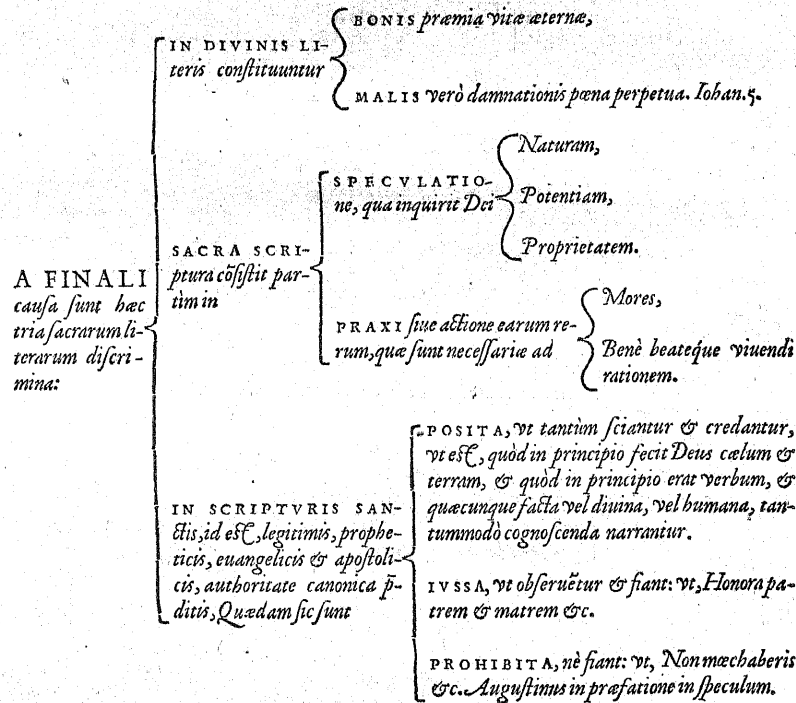 A FINALI
cauſa ſunt hæc
tria ſacrarum li-
terarum diſcri-
mina:
IN DIVINIS LI-
teris conſtituuntur
BONIS præmia vitæ æternæ,
MALIS verò damnationis pœna perpetua. Iohan.5.
SACRA SCRI-
ptura cõſiſtit par-
tim in
SPECVLATIO-
ne, qua inquirit Dei
Naturam,
Potentiam,
Proprietatem.
PRAXI ſiue actione earum re-
rum, quæ ſunt neceſſariæ ad
Mores,
Benè beateq́ue viuendi
rationem.
IN SCRIPTVRIS SAN-
ctis, id eſt, legitimis, prophe-
ticis, euangelicis & apoſtoli-
cis, authoritate canonica p̄-
ditis, Quædam ſic ſunt
POSITA, vt tantùm ſciantur & credantur,
vt eſt, quòd in principio fecit Deus cælum &
terram, & quòd in principio erat verbum, &
quæcunque facta vel diuina, vel humana, tan-
tummodò cognoſcenda narrantur.
IVSSA, vt obſeruẽtur & fiant: vt, Honora pa-
trem & matrem &c.
PROHIBITA, nè fiant: vt, Non mœchaberis
&c. Auguſtinus in præfatione in ſpeculum.